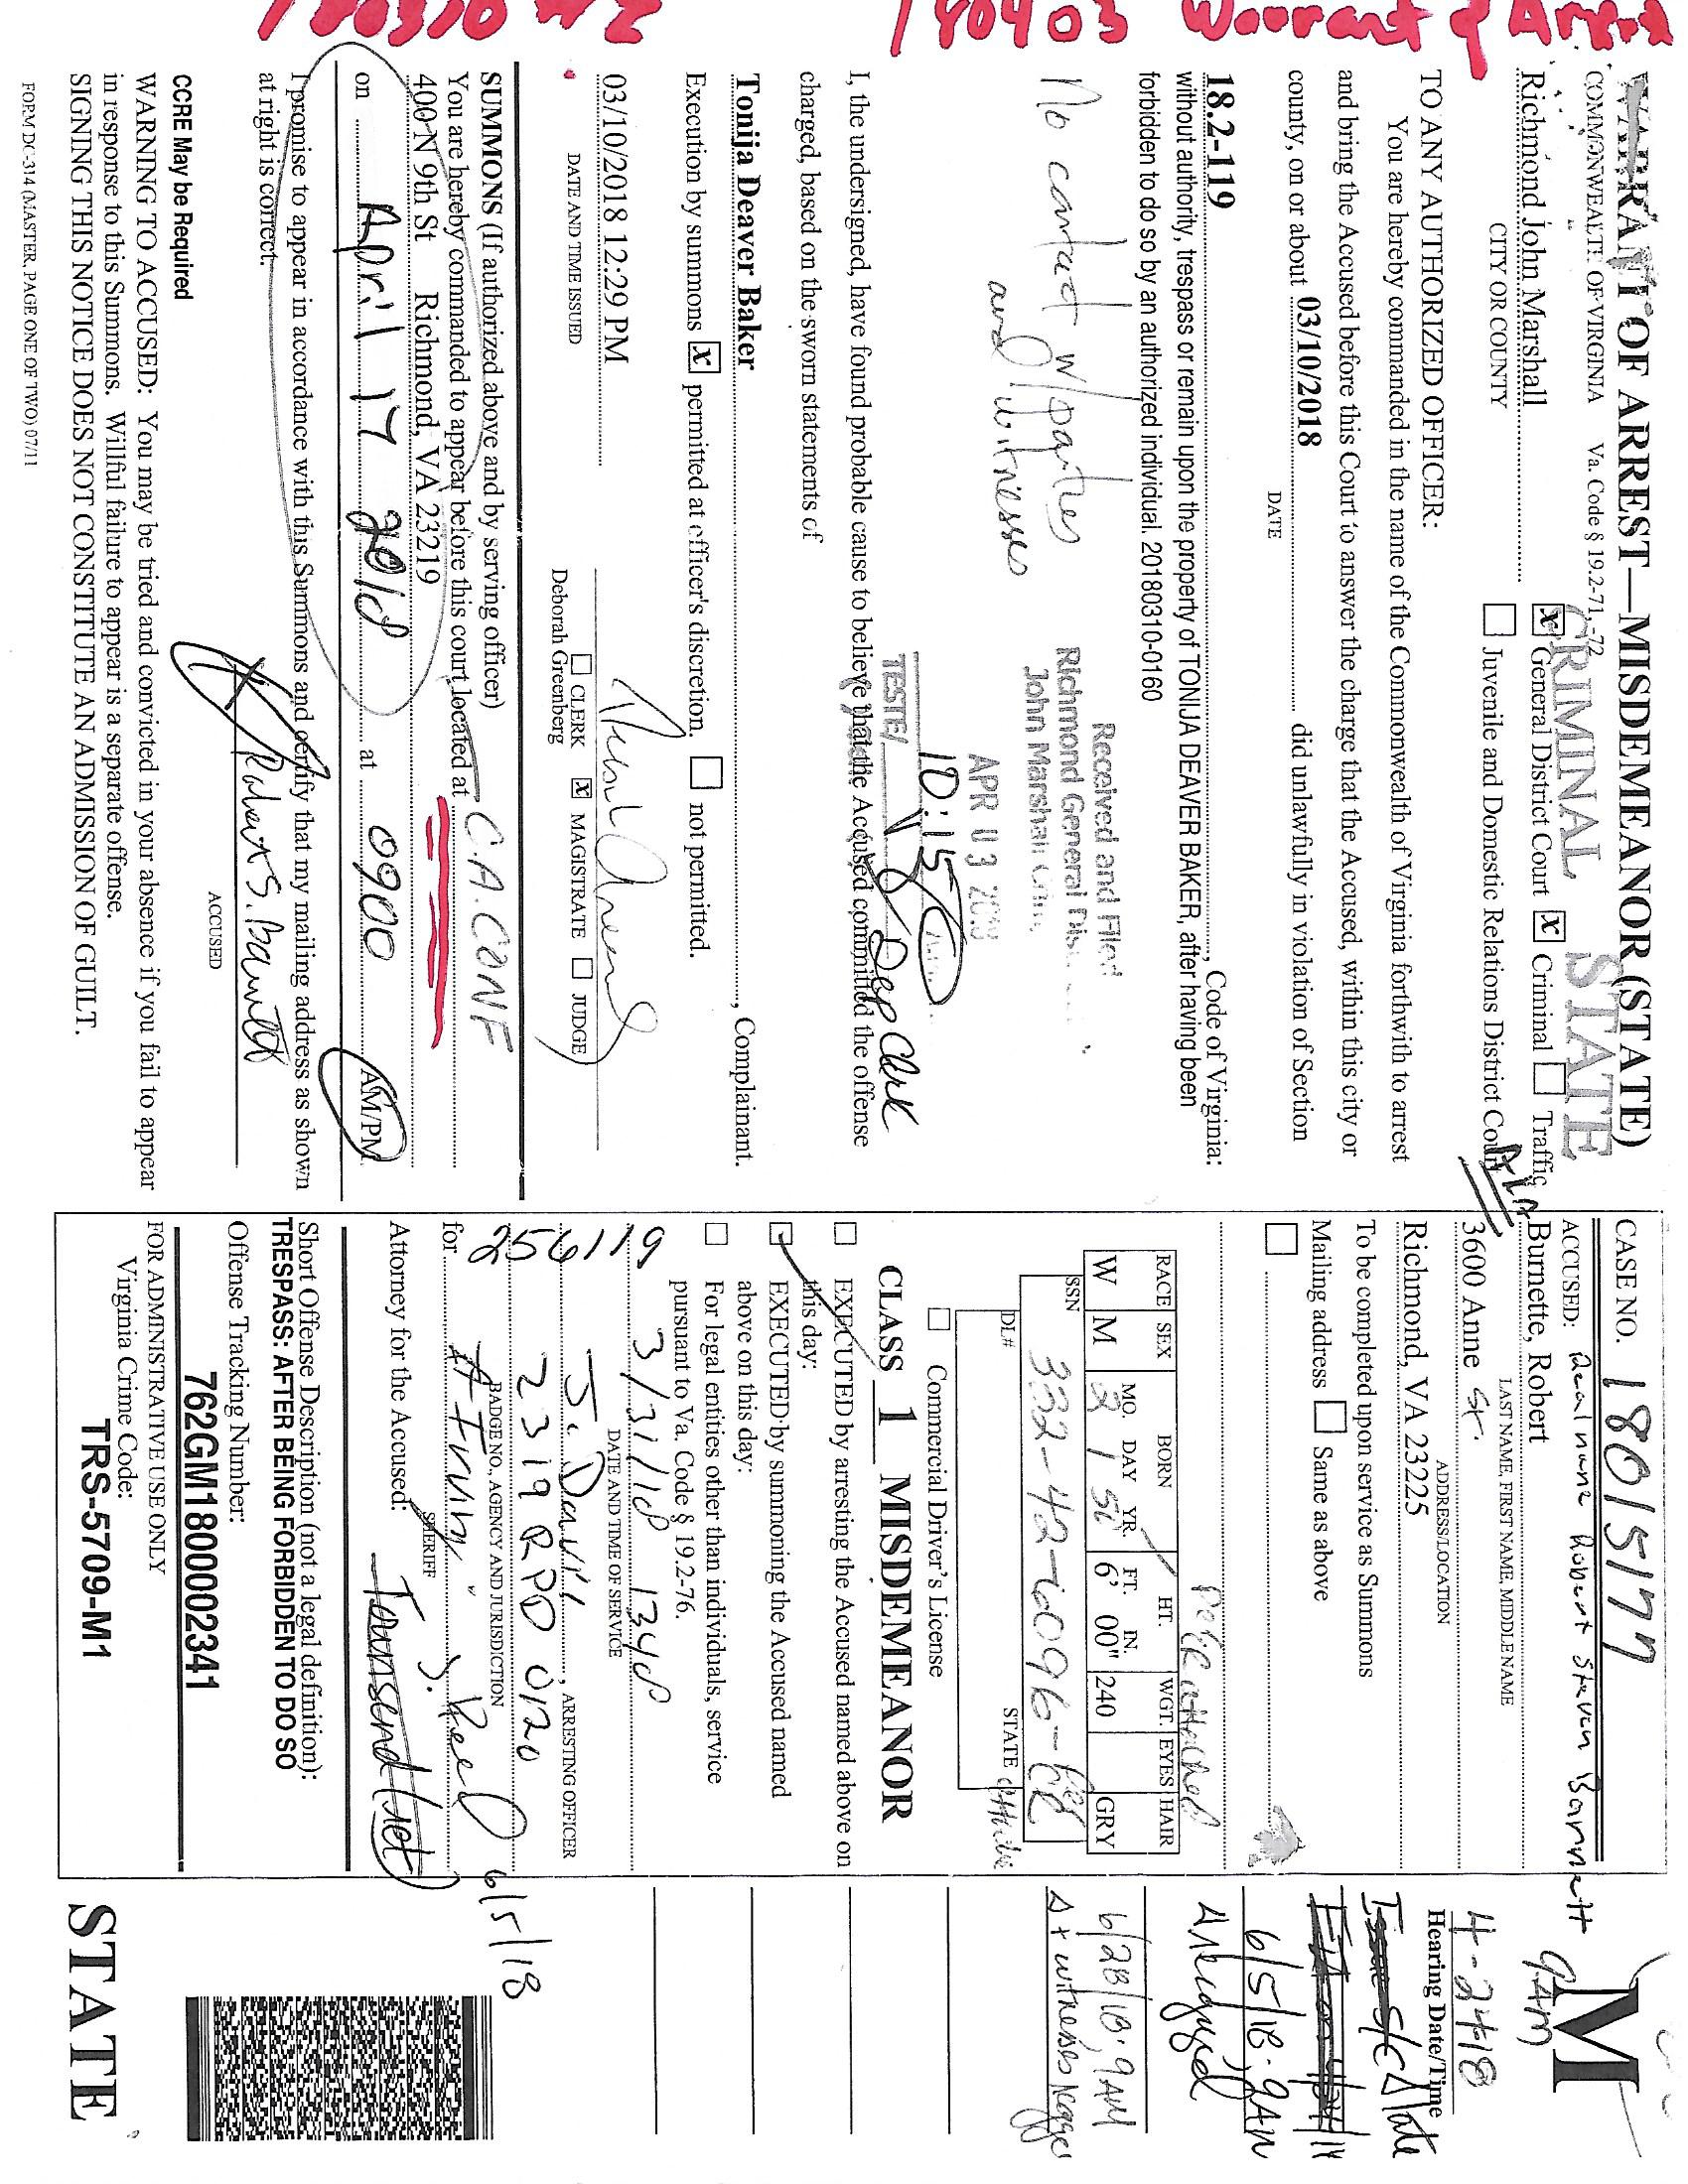 180403 Warrant of Arrest
WARRANT OF ARREST—MISDEMEANOR (STATE)
COMMONWEALTH OF VIRGINIA Va. Code § 19.2-71, -72
CRIMINAL STATE
Richmond John Marshall
CITY OR COUNTY
[x] General District Court [x] Criminal [ ] Traffic
[ ] Juvenile and Domestic Relations District Court
TO ANY AUTHORIZED OFFICER:
You are hereby commanded in the name of the Commonwealth of Virginia forthwith to arrest
and bring the Accused before this Court to answer the charge that the Accused, within this city or
county, on or about 03/10/2018 did unlawfully in violation of Section
DATE
18.2-119, Code of Virginia:
without authority, trespass or remain upon the property of TONIJA DEAVER BAKER, after having been
forbidden to do so by an authorized individual. 20180310-0160
No contact w/ parties
and witnesses
Received and Filed
Richmond General Dis
John Marshall
APR 03
10:15
TESTE:
Dep Clerk
I, the undersigned, have found probable cause to believe that the Accused committed the offense
charged, based on the sworn statements of
Tonija Deaver Baker, Complainant.
Execution by summons [x] permitted at officer's discretion. [ ] not permitted.
03/10/2018 12:29 PM
DATE AND TIME ISSUED
[ ] CLERK [x] MAGISTRATE [ ] JUDGE
Deborah Greenberg
SUMMONS (If authorized above and by serving officer)
You are hereby commanded to appear before this court located at C.A. CONF
400 N 9th St Richmond, VA 23219
on April 17 2018 at 0900 AM/PM
I promise to appear in accordance with this Summons and certify that my mailing address as shown
at right is correct.
X Robert S. Barnett
ACCUSED
CCRE May be Required
WARNING TO ACCUSED: You may be tried and convicted in your absence if you fail to appear
in response to this Summons. Willful failure to appear is a separate offense.
SIGNING THIS NOTICE DOES NOT CONSTITUTE AN ADMISSION OF GUILT.
FORM DC-314 (MASTER, PAGE ONE OF TWO) 07/11
CASE NO. 18015177
ACCUSED: Real name Robert Steven Barnett
Burnette, Robert
LAST NAME, FIRST NAME, MIDDLE NAME
3600 Anne St.
ADDRESS/LOCATION
Richmond, VA 23225
To be completed upon service as Summons
Mailing address [ ] Same as above
[ ]
RACE SEX BORN HT. WGT. EYES HAIR
MO. DAY YR. FT. IN.
W M 2 1 6' 00" 240 GRY
SSN
DL# STATE
[ ] Commercial Driver's License
CLASS 1 MISDEMEANOR
[ ] EXECUTED by arresting the Accused named above on
this day:
[✓] EXECUTED by summoning the Accused named
above on this day:
[ ] For legal entities other than individuals, service
pursuant to Va. Code § 19.2-76.
3/31/18 1348
DATE AND TIME OF SERVICE
J. Davis, ARRESTING OFFICER
2319 RPD 0120
BADGE NO., AGENCY AND JURISDICTION
256119
for
SHERIFF
Attorney for the Accused:
6/5/18
Short Offense Description (not a legal definition):
TRESPASS: AFTER BEING FORBIDDEN TO DO SO
Offense Tracking Number:
762GM1800002341
FOR ADMINISTRATIVE USE ONLY
Virginia Crime Code:
TRS-5709-M1
M
9AM
Hearing Date/Time
4-24-18
6/5/18. 9AM
6/28/18. 9AM
STATE